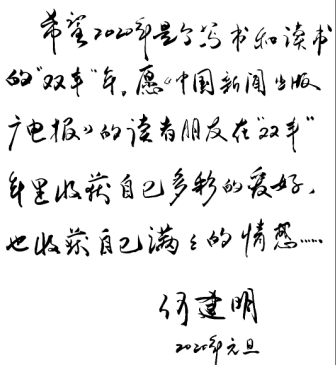 希望2020年是个写书和读书
的“双丰”年。愿《中国新闻出版
广电报》的读者朋友在“双丰”
年里收获自己多彩的爱好，
也收获自己满满的情感……
何建明
2020年元旦